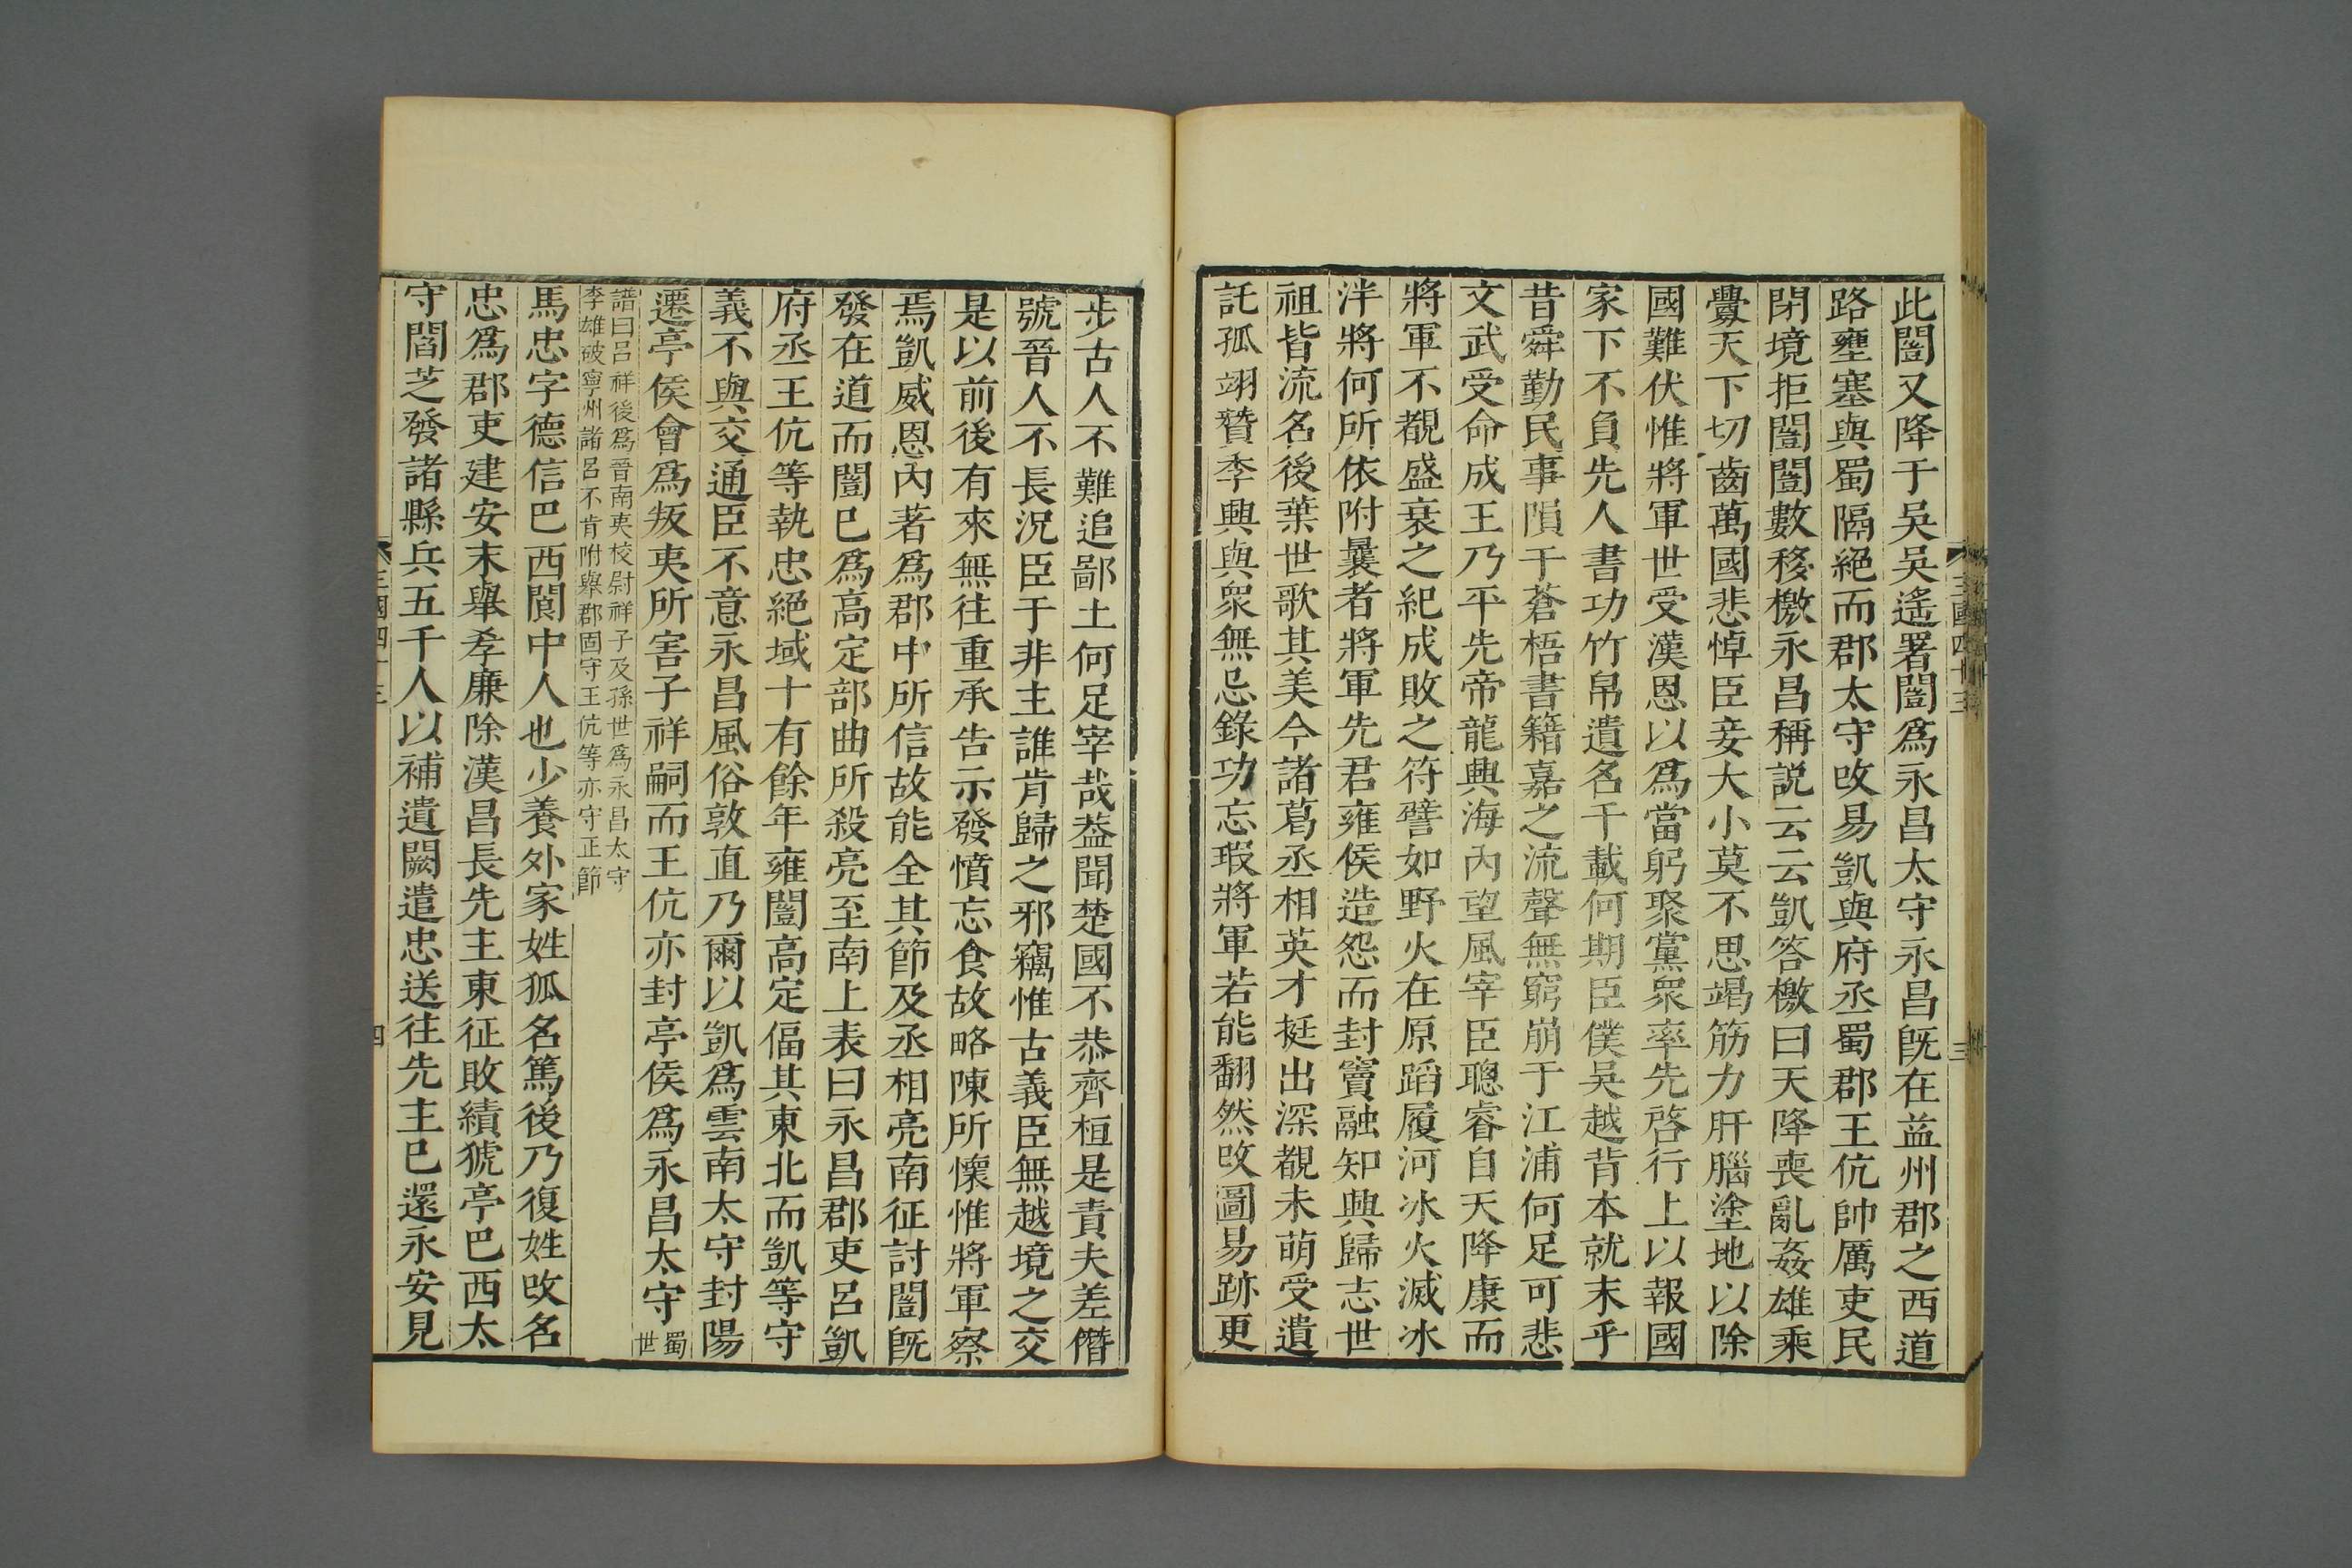 此闓又降于吳吳遙署闓爲永昌太守永昌旣在益州郡之西道
路壅塞與蜀隔絕而郡太守改易凱與府丞蜀郡王伉帥厲吏民
閉境拒闓闓數移檄永昌稱説云云凱答檄曰天降喪亂姦雄乘
釁天下切齒萬國悲悼臣妾大小莫不思竭筋力肝腦塗地以除
國難伏惟將軍世受漢恩以爲當躬聚黨衆率先啓行上以報國
家下不負先人書功竹帛遺名千載何期臣僕吳越背本就末乎
昔舜勤民事隕于蒼梧書籍嘉之流聲無窮崩于江浦何足可悲
文武受命成王乃平先帝龍興海內望風宰臣聰睿自天降康而
將軍不覩盛衰之紀成敗之符譬如野火在原蹈履河冰火滅冰
泮將何所依附曩者將軍先君雍侯造怨而封竇融知興歸志世
祖皆流名後葉世歌其美今諸葛丞相英才挺出深覩未萌受遺
託孤翊贊季興與衆無忌錄功忘瑕將軍若能翻然改圖易跡更
三國四十三
三
步古人不難追鄙土何足宰哉葢聞楚國不恭齊桓是責夫差僭
號晉人不長況臣于非主誰肯歸之邪竊惟古義臣無越境之交
是以前後有來無往重承告示發憤忘食故略陳所懷惟將軍察
焉凱威恩內著爲郡中所信故能全其節及丞相亮南征討闓旣
發在道而闓已爲高定部曲所殺亮至南上表曰永昌郡吏呂凱
府丞王伉等執忠絕域十有餘年雍闓高定偪其東北而凱等守
義不與交通臣不意永昌風俗敦直乃爾以凱爲雲南太守封陽
遷亭侯會爲叛夷所害子祥嗣而王伉亦封亭侯爲永昌太守蜀世
譜曰呂祥後爲晉南夷校尉祥子及孫世爲永昌太守
李雄破寧州諸呂不肯附舉郡固守王伉等亦守正節
馬忠字德信巴西閬中人也少養外家姓狐名篤後乃復姓改名
忠爲郡吏建安末舉孝廉除漢昌長先主東征敗績猇亭巴西太
守閻芝發諸縣兵五千人以補遺闕遣忠送往先主已還永安見
三國四十三
四